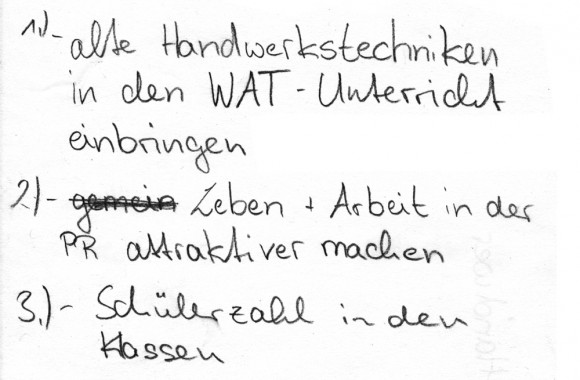 1.)- alte Handwerkstechniken
in den WAT-Unterricht
einbringen
2)- gemein Leben + Arbeit in der
PR attraktiver machen
3.)- Schülerzahl in den
Klassen